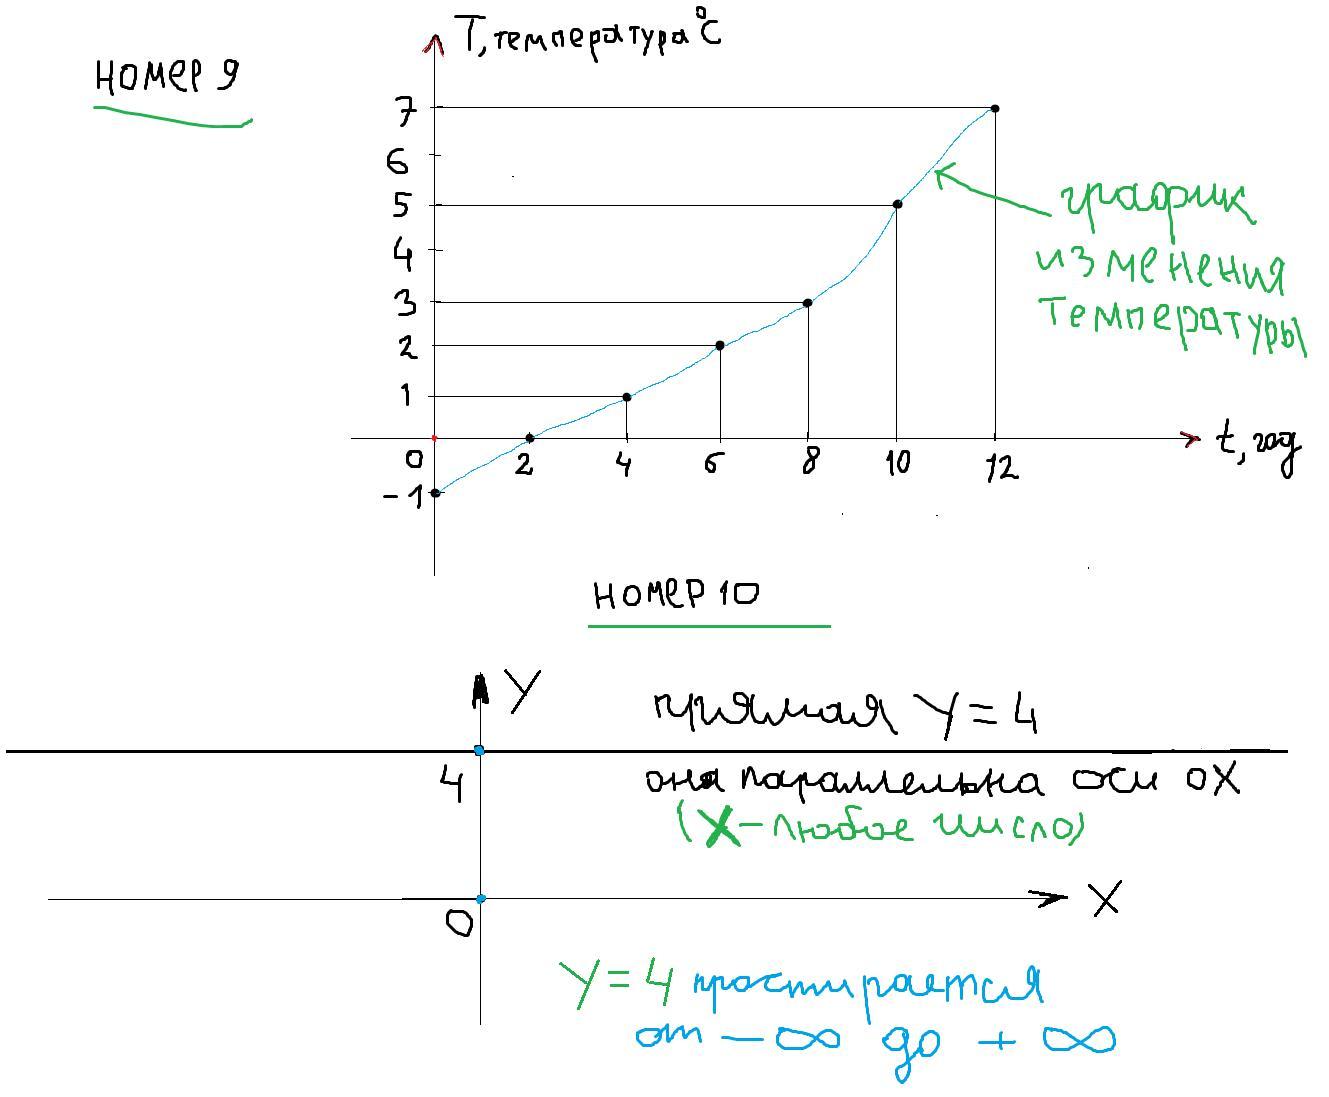 НОМЕР 9
T, температура °C
7
6
5
4
3
2
1
0
-1
2 4 6 8 10 12
t, год
график
изменения
температуры
НОМЕР 10
Y
прямая Y = 4
4
она параллельна оси OX
(X - любое число)
X
0
Y = 4 простирается
от - ∞ до + ∞